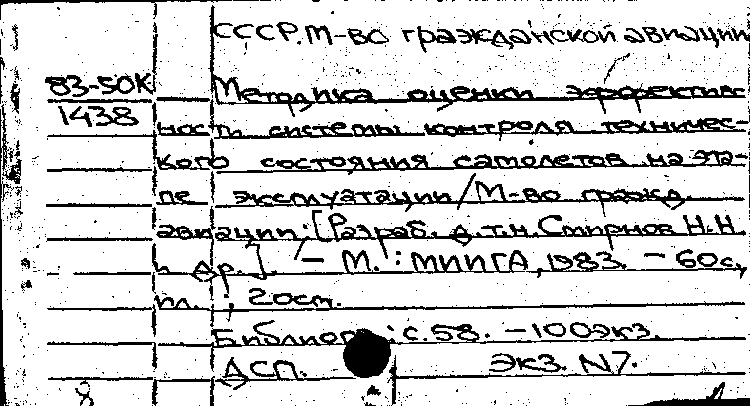 СССР. М-во гражданской авиации
83-50К
Методика оценки эффектив-
1438
ности системы контроля техничес-
кого состояния самолетов на эта-
пе эксплуатации / М-во гражд.
авиации: [Разраб. д.т.н. Смирнов Н.Н.
и др.]. - М.: МИИГА, 1983. - 60с.,
ил.; 20см.
Библиогр.: с.58. - 100экз.
ДСП. экз. N7.
8